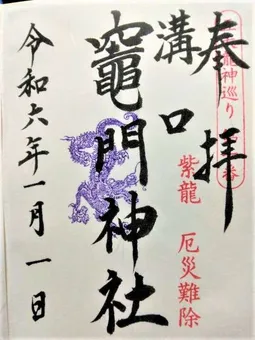 奉拝
龍神巡り
紫龍 厄災難除
溝口
竈門神社
令和六年一月一日